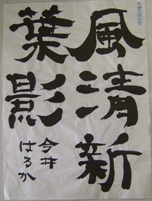 風清新
葉影
今井
はるか